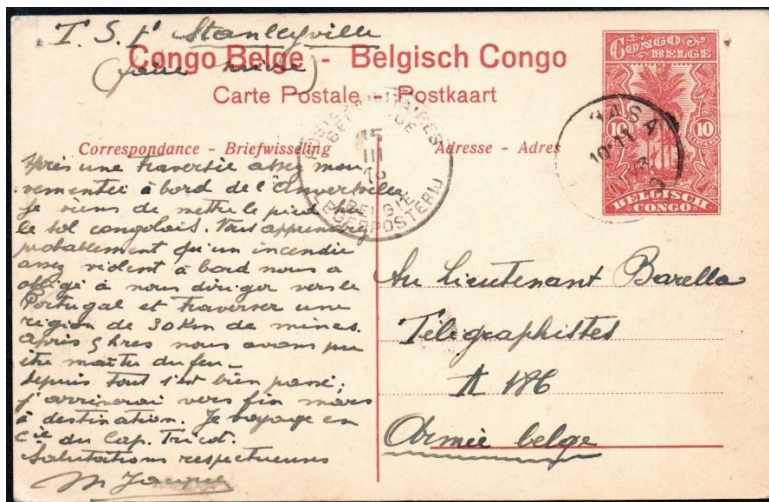 T. S. F. Stanleyville
Congo Belge - Belgisch Congo
Carte Postale - Postkaart
Correspondance - Briefwisseling
Adresse - Adres
CONGO BELGE
10 10
BELGISCH CONGO
POSTES MILITAIRES
BELGIQUE
15
III
BELGIE
LEGERPOSTERIJ
Après une traversée assez mou
vementée à bord de l'Anversville
je viens de mettre le pied
le sol congolais. Vous apprendrez
probablement qu'un incendie
assez violent à bord nous a
obligé à nous diriger vers le
Portugal et traverser une
région de 30 Km de mines.
Après 5 hres nous avons pu
être maître du feu.
Depuis tout s'est bien passé;
j'arriverai vers fin mars
à destination. Je voyage en
Cie du Cap. Tricot.
Salutations respectueuses
Au Lieutenant Barella
Télégraphistes
A 186
Armée belge